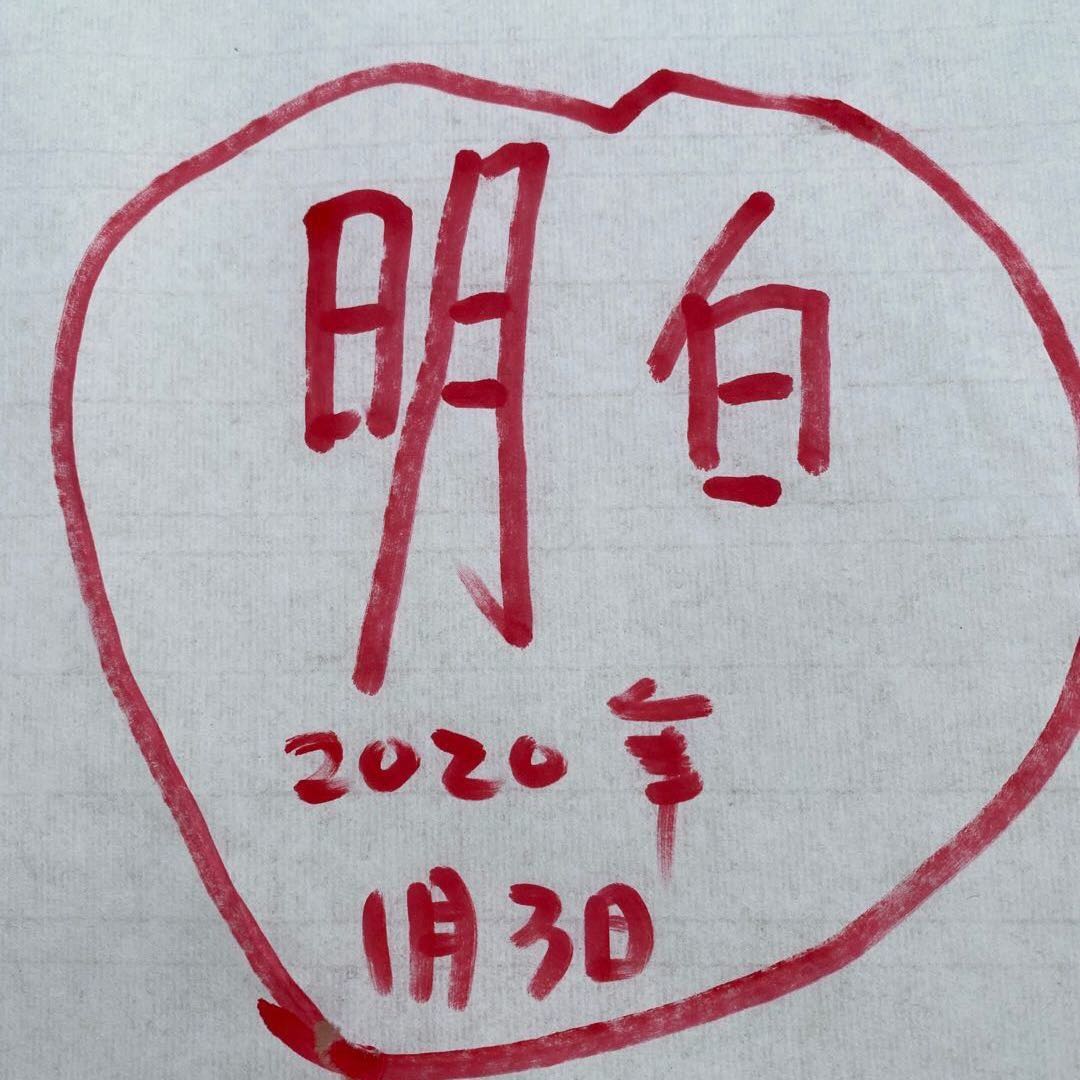 明白
2020年
1月3日